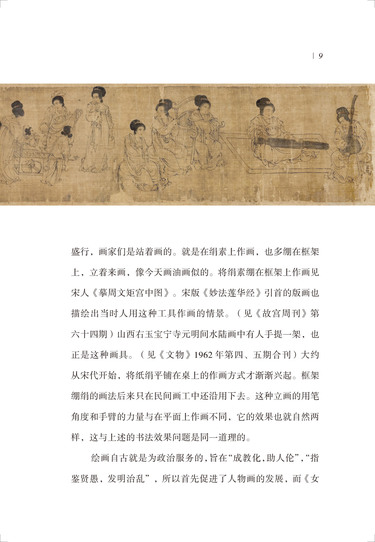 | 9
盛行，画家们是站着画的。就是在绢素上作画，也多绷在框架
上，立着来画，像今天画油画似的。将绢素绷在框架上作画见
宋人《摹周文矩宫中图》。宋版《妙法莲华经》引首的版画也
描绘出当时人用这种工具作画的情景。（见《故宫周刊》第
六十四期）山西右玉宝宁寺元明间水陆画中有人手提一架，也
正是这种画具。（见《文物》1962 年第四、五期合刊）大约
从宋代开始，将纸绢平铺在桌上的作画方式才渐渐兴起。框架
绷绢的画法后来只在民间画工中还沿用下去。这种立画的用笔
角度和手臂的力量与在平面上作画不同，它的效果也就自然两
样，这与上述的书法效果问题是同一道理的。
绘画自古就是为政治服务的，旨在“成教化，助人伦”，“指
鉴贤愚，发明治乱”，所以首先促进了人物画的发展，而《女